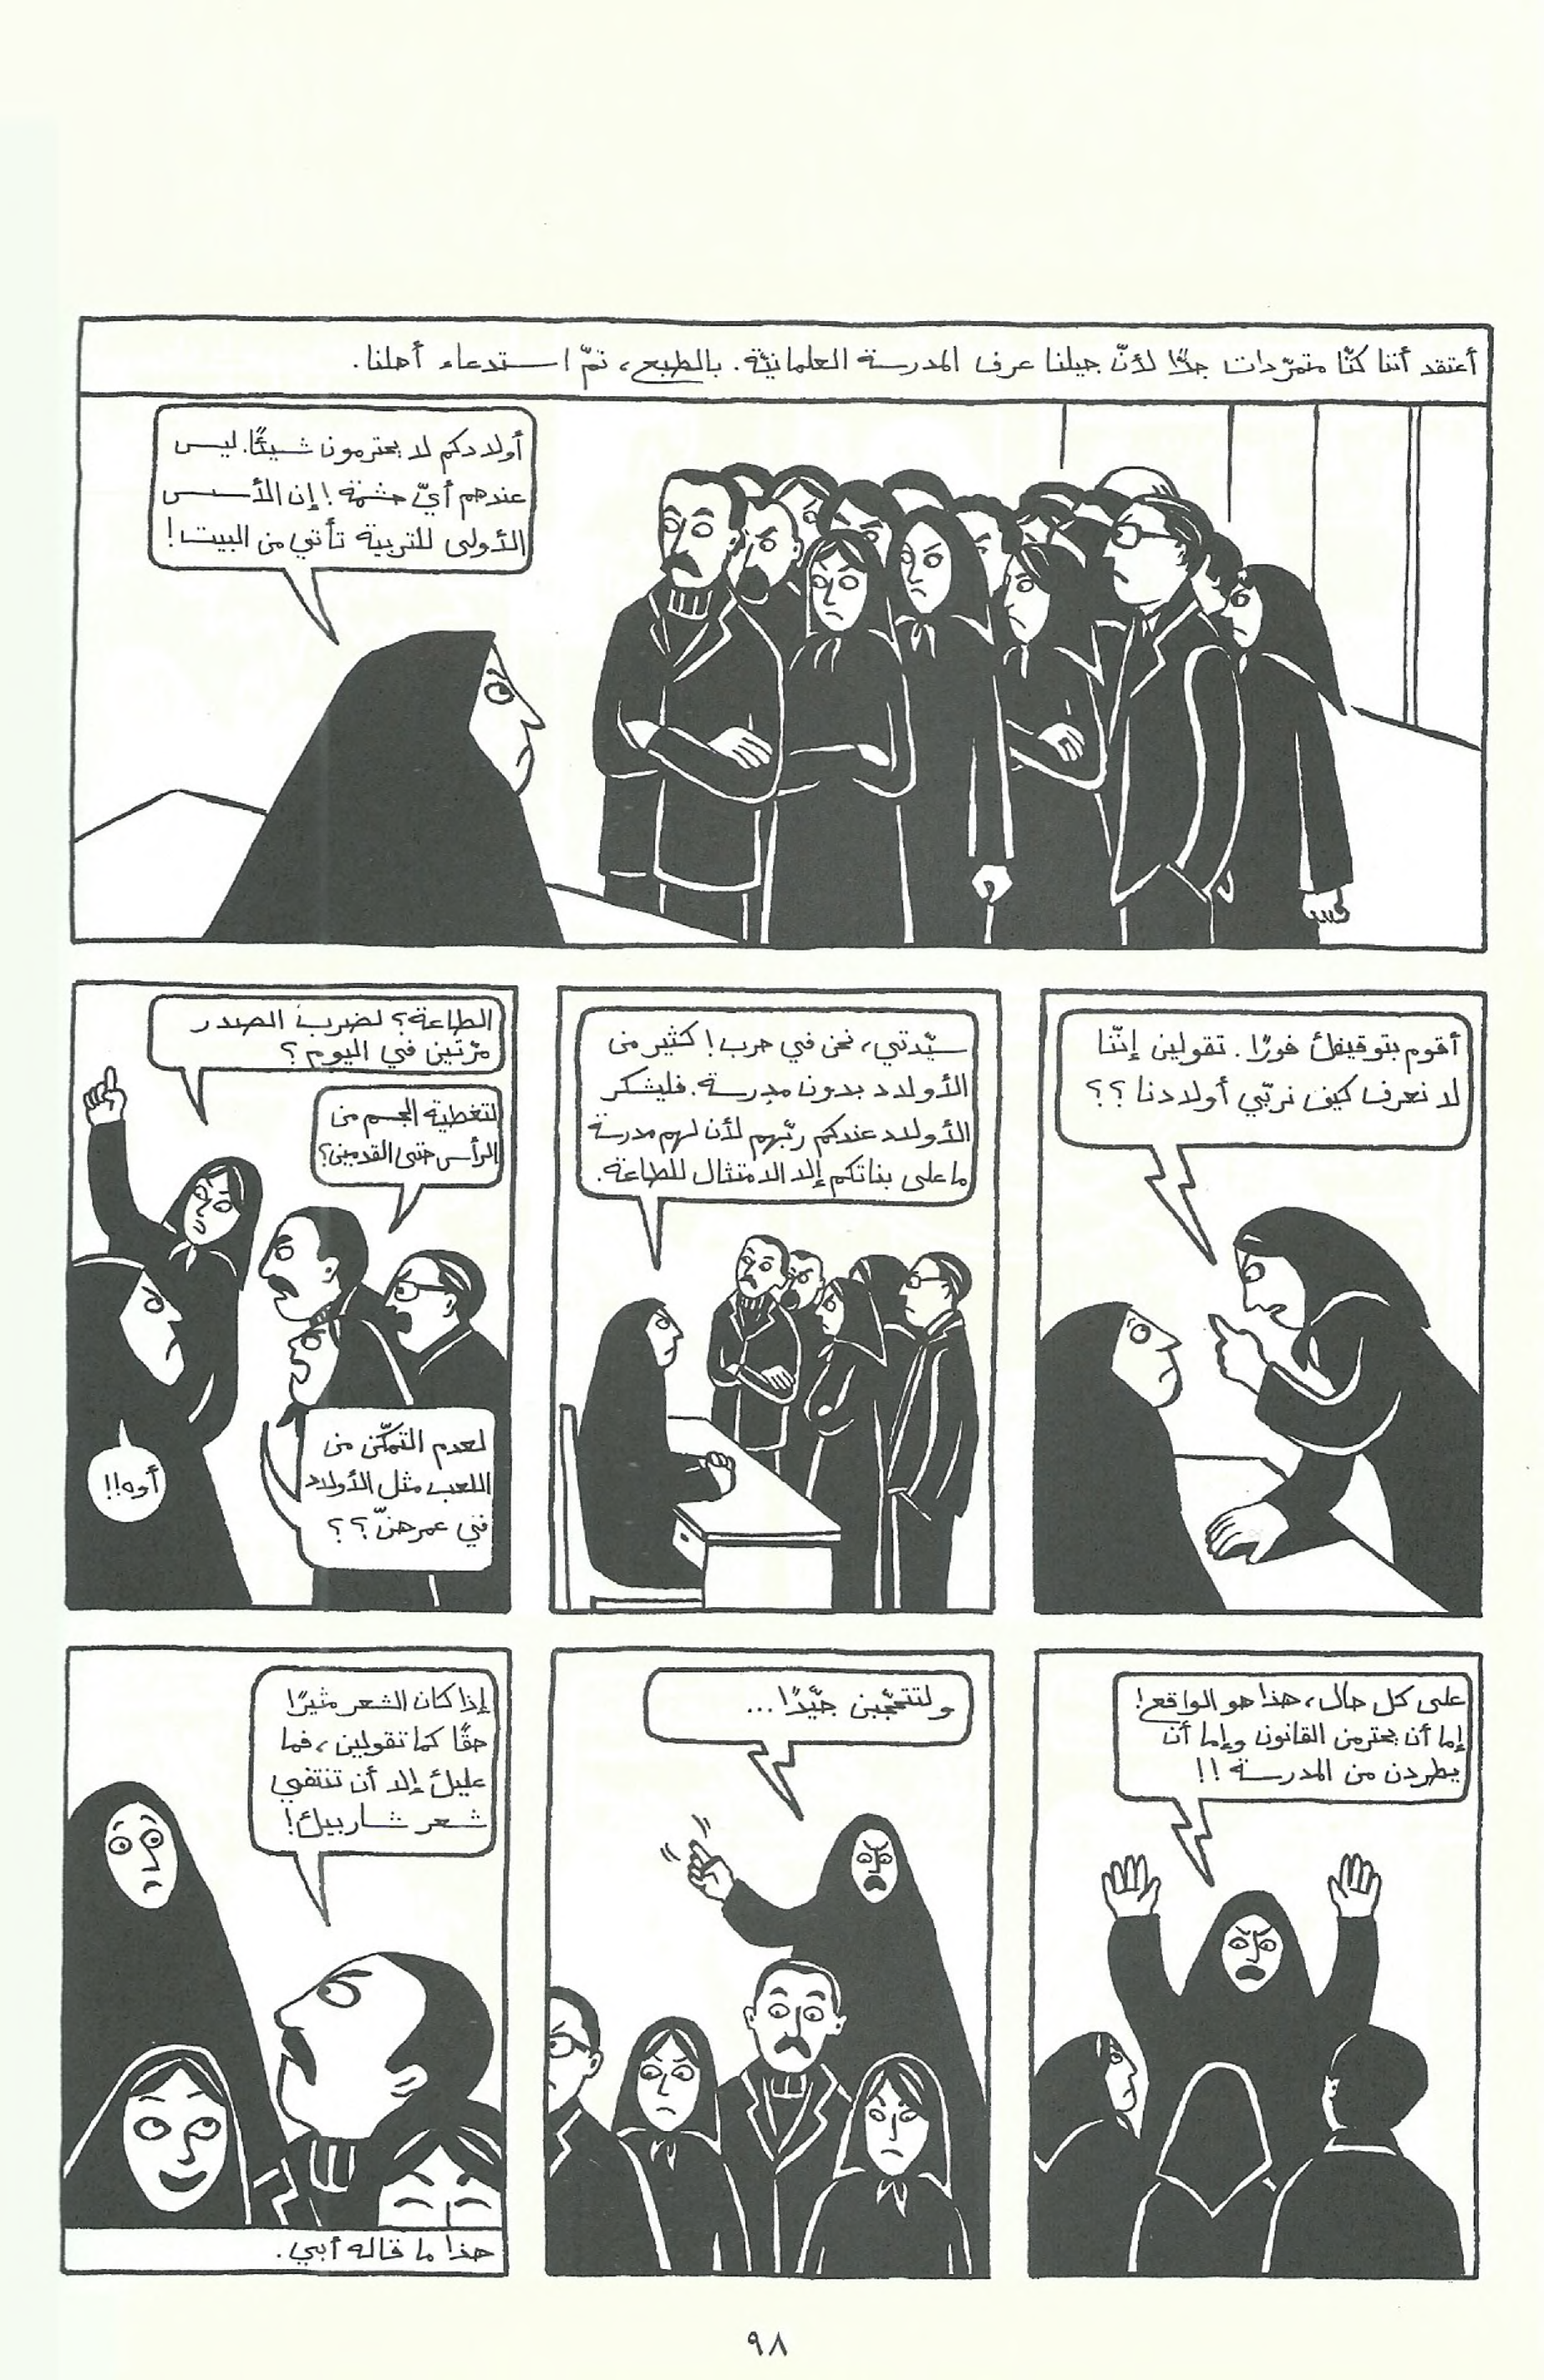 أعتقد أننا كنّا متمرّدات جدًّا لأنّ جيلنا عرف المدرسة العلمانيّة. بالطبع، تمّ استدعاء أهلنا.
أولادكم لا يحترمون شيئًا. ليس
عندهم أيّ حشمة! إن الأسس
الأولى للتربية تأتي من البيت!
أقوم بتوقيفك فورًا. تقولين إنّنا
لا نعرف كيف نربّي أولادنا؟؟
سيّدتي، نحن في حرب! كثير من
الأولاد بدون مدرسة. فليشكر
الأولاد عندكم ربّهم لأن لهم مدرسة
ما على بناتكم إلا الامتثال للطاعة.
الطاعة؟ لضرب الصدر
مرّتين في اليوم؟
لتغطية الجسم من
الرأس حتى القدمين؟
لعدم التمكّن من
اللعب مثل الأولاد
في عمرهنّ؟؟
أوه!!
على كل حال، هذا هو الواقع!
إما أن يحترمن القانون وإما أن
يطردن من المدرسة!!
ولتتحجّبن جيّدًا...
إذا كان الشعر مثيرًا
حقًا كما تقولين، فما
عليك إلا أن تنتفي
شعر شاربيك!
هذا ما قاله أبي.
٩٨